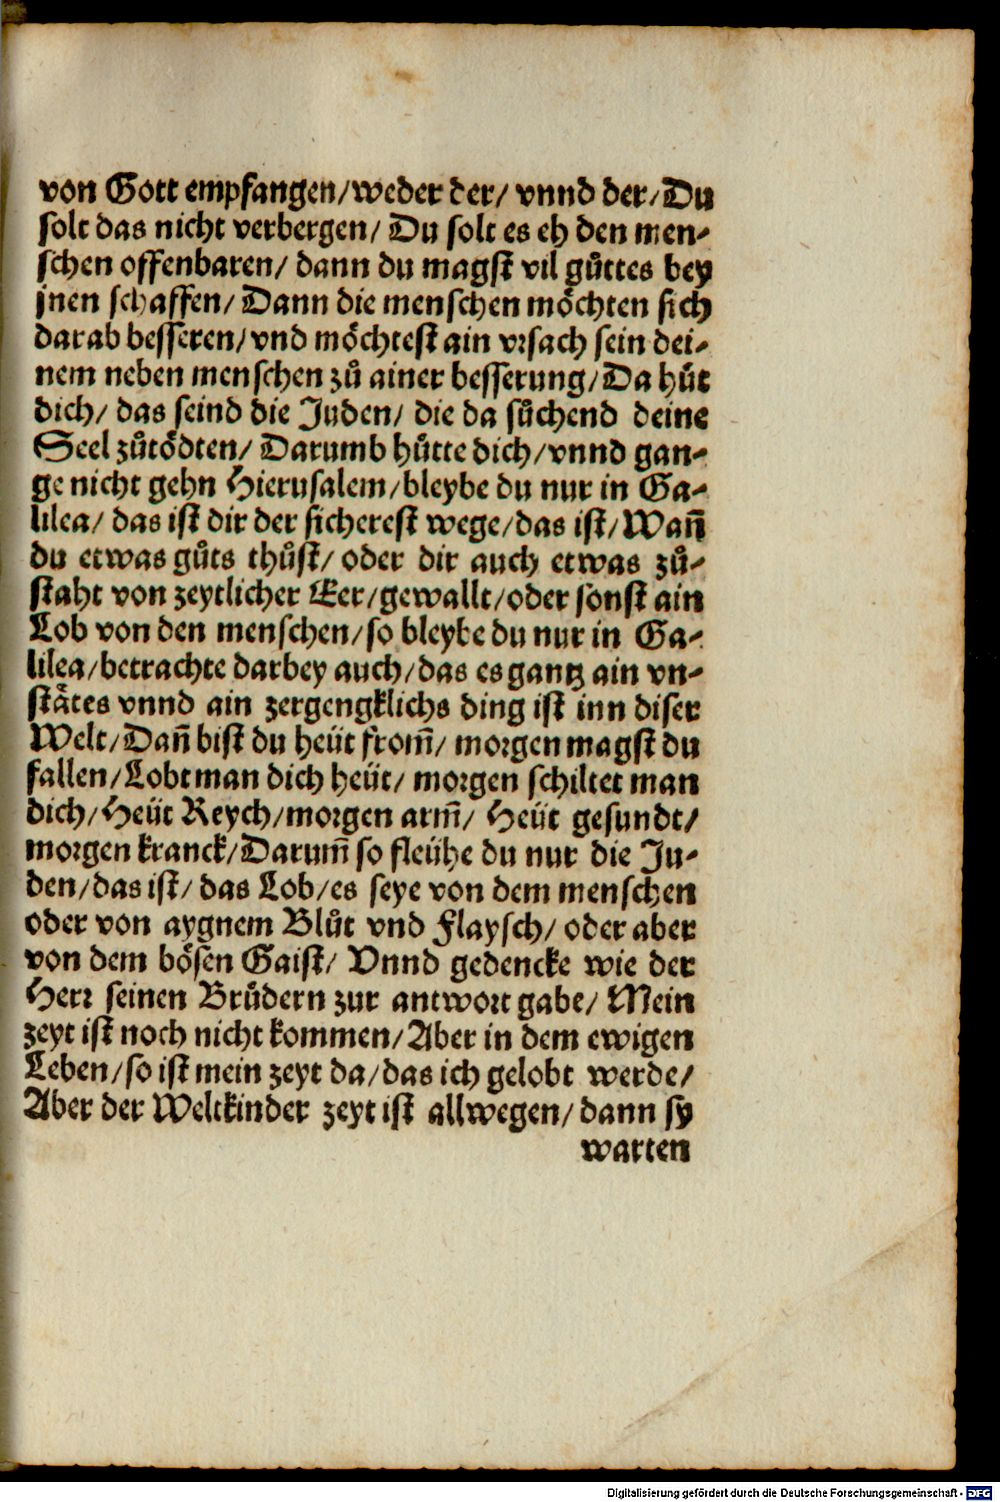 von Gott empfangen/weder der/ vnnd der/Du
solt das nicht verbergen/ Du solt es eh den men⸗
schen offenbaren/ dann du magst vil gůttes bey
jnen schaffen/ Dann die menschen möchten sich
darab besseren/ vnd möchtest ain vrsach sein dei⸗
nem neben menschen zů ainer besserung/ Da hůt
dich/ das seind die Juden/ die da sůchend deine
Seel zůtödten/ Darumb hůtte dich/ vnnd gan⸗
ge nicht gehn Hierusalem/ bleybe du nur in Ga⸗
lilea/ das ist dir der sicherest wege/ das ist/ Wañ
du etwas gůts thůst/ oder dir auch etwas zů⸗
staht von zeytlicher Eer/ gewallt/ oder sonst ain
Lob von den menschen/ so bleybe du nur in Ga⸗
lilea/ betrachte darbey auch/ das es gantz ain vn⸗
stätes vnnd ain zergengklichs ding ist inn diser
Welt/ Dañ bist du heüt from̃/ morgen magst du
fallen/ Lobt man dich heüt/ morgen schiltet man
dich/ Heüt Reych/ morgen arm̃/ Heüt gesundt/
morgen kranck/ Darum̃ so fleühe du nur die Ju⸗
den/ das ist/ das Lob/ es seye von dem menschen
oder von aygnem Blůt vnd Flaysch/ oder aber
von dem bösen Gaist/ Vnnd gedencke wie der
Herr seinen Brůdern zur antwort gabe/ Mein
zeyt ist noch nicht kommen/ Aber in dem ewigen
Leben/ so ist mein zeyt da/ das ich gelobt werde/
Aber der Weltkinder zeyt ist allwegen/ dann sy
warten
Digitalisierung gefördert durch die Deutsche Forschungsgemeinschaft - DFG